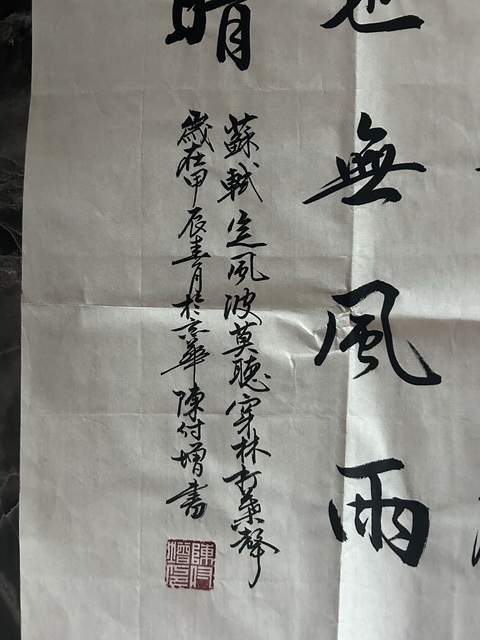 也無風雨
晴
蘇軾定風波莫聽穿林打葉聲
歲在甲辰春月於京華陳付增書